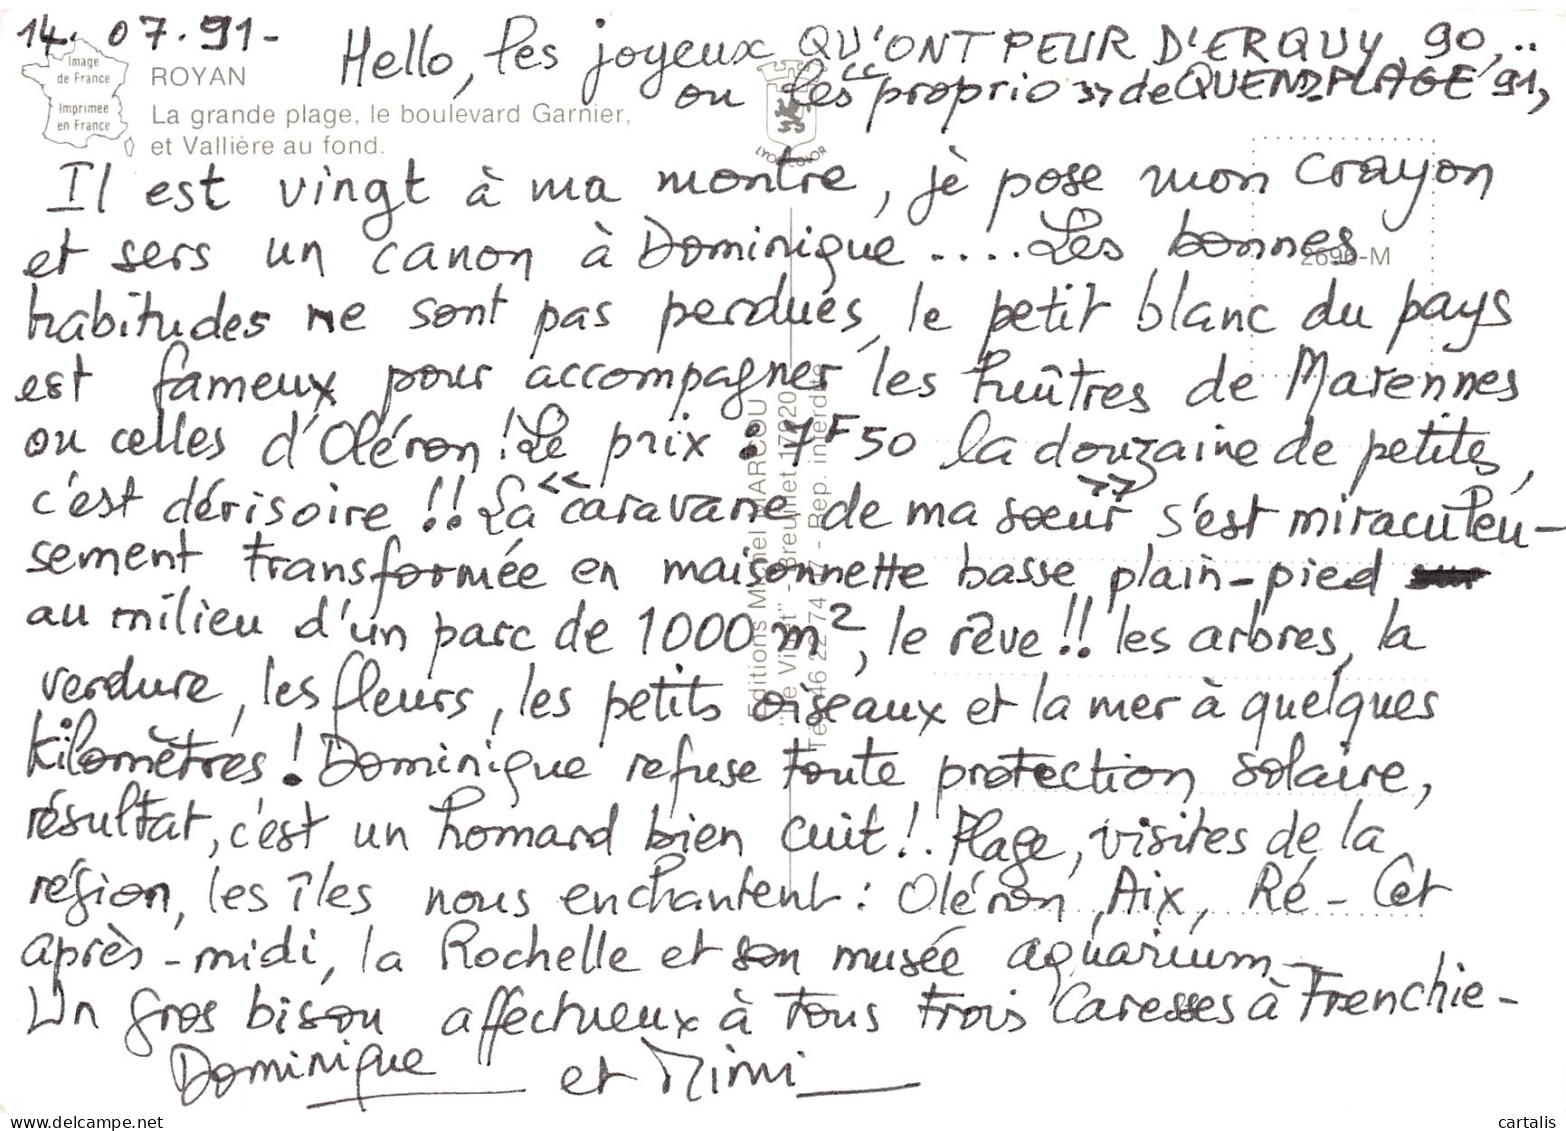 14.07.91-
Hello, les joyeux QU'ONT PEUR D'ERQUY 90,..
ou les "proprio" de QUEND-PLAGE 91,
Image
de France
Imprimée
en France
ROYAN
La grande plage, le boulevard Garnier,
et Vallière au fond.
LYONCOLOR
2696-M
Il est vingt à ma montre, jè pose mon crayon
et sers un canon à Dominique..... Les bonnes
habitudes ne sont pas perdues, le petit blanc du pays
est fameux pour accompagner les huîtres de Marennes
ou celles d'Oléron! Le prix : 7F50 la douzaine de petites,
c'est dérisoire !! La "caravane de ma sœur" s'est miraculeu-
sement transformée en maisonnette basse, plain-pied
au milieu d'un parc de 1000 m², le rêve!! les arbres, la
verdure, les fleurs, les petits oiseaux et la mer à quelques
kilomètres! Dominique refuse toute protection solaire,
résultat, c'est un homard bien cuit!. Plage, visites de la
région, les îles nous enchantent: Oléron, Aix, Ré- Cet
après-midi, la Rochelle et son musée aquarium-
Un gros bisou affectueux à tous trois Caresses à Frenchie-
Dominique et Mimi
Editions Michel MARCOU
Breuillet 17920
46 22 74 - Rep. interdite
delcampe.net
cartalis